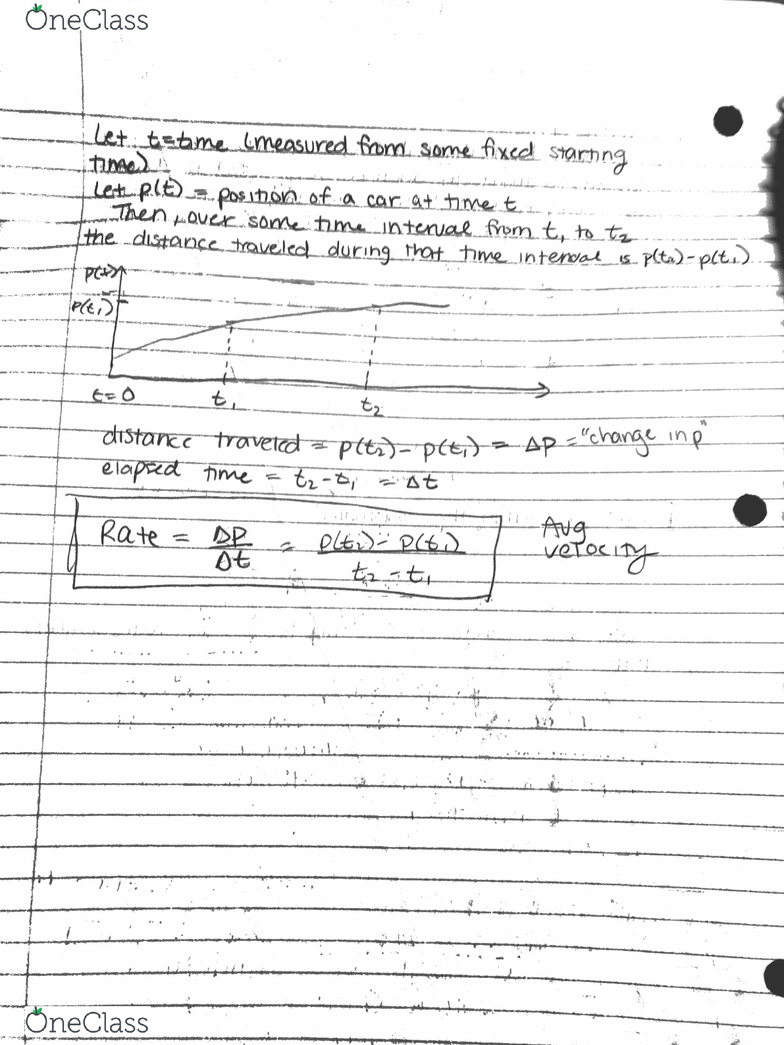 OneClass
Let t=time (measured from some fixed starting
time)
Let p(t) = position of a car at time t
Then, over some time interval from t₁ to t₂
the distance traveled during that time interval is p(t₂)-p(t₁)
p(t₂)
p(t₁)
t=0 t₁ t₂
distance traveled = p(t₂)-p(t₁) = Δp = "change in p"
elapsed time = t₂-t₁ = Δt
Rate = Δp/Δt = p(t₂)-p(t₁)/t₂-t₁ Avg
velocity
OneClass